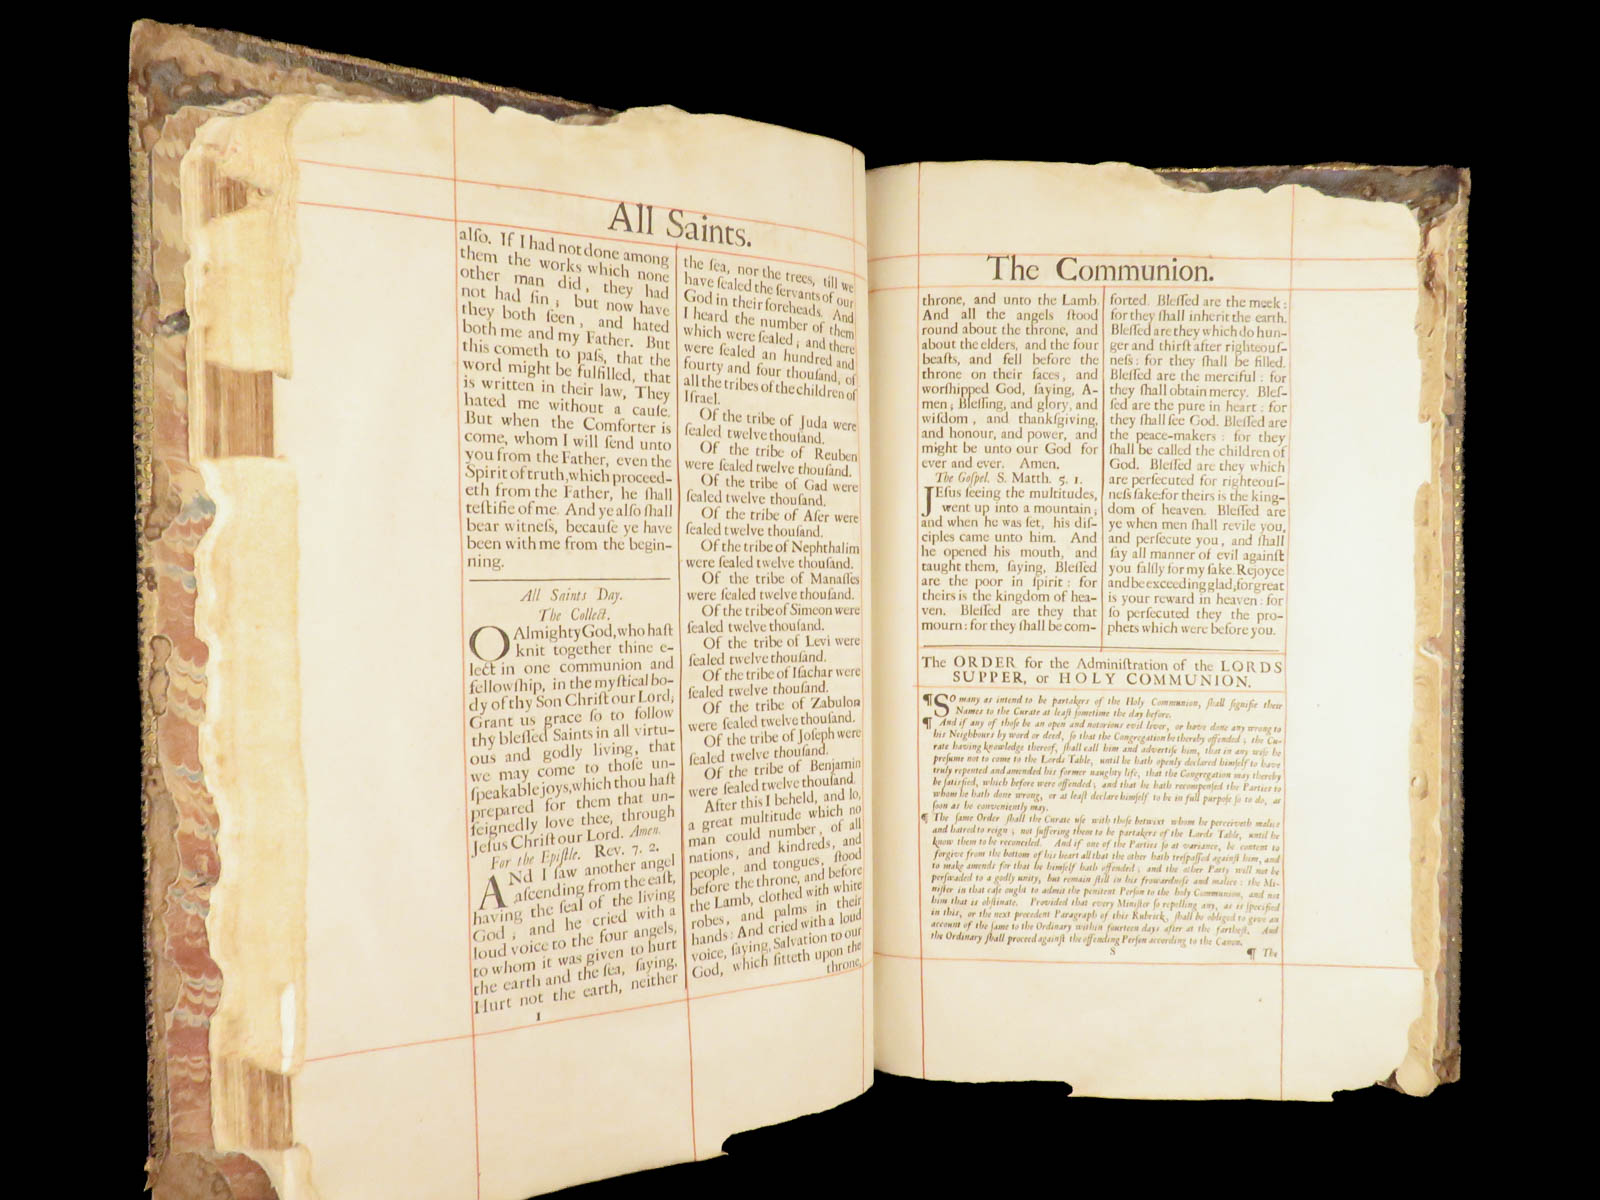 All Saints.
alſo. If I had not done among
them the works which none
other man did, they had
not had ſin; but now have
they both ſeen, and hated
both me and my Father. But
this cometh to paſs, that the
word might be fulfilled, that
is written in their law, They
hated me without a cauſe.
But when the Comforter is
come, whom I will ſend unto
you from the Father, even the
Spirit of truth, which proceed-
eth from the Father, he ſhall
teſtifie of me. And ye alſo ſhall
bear witneſs, becauſe ye have
been with me from the begin-
ning.
All Saints Day.
The Collect.
O Almighty God, who haſt
knit together thine e-
lect in one communion and
fellowſhip, in the myſtical bo-
dy of thy Son Chriſt our Lord;
Grant us grace ſo to follow
thy bleſſed Saints in all virtu-
ous and godly living, that
we may come to thoſe un-
ſpeakable joys, which thou haſt
prepared for them that un-
feignedly love thee, through
Jeſus Chriſt our Lord. Amen.
For the Epiſtle. Rev. 7. 2.
ANd I ſaw another angel
aſcending from the eaſt,
having the ſeal of the living
God; and he cried with a
loud voice to the four angels,
to whom it was given to hurt
the earth and the ſea, ſaying,
Hurt not the earth, neither
I
the ſea, nor the trees, till we
have ſealed the ſervants of our
God in their foreheads. And
I heard the number of them
which were ſealed; and there
were ſealed an hundred and
fourty and four thouſand, of
all the tribes of the children of
Iſrael.
Of the tribe of Juda were
ſealed twelve thouſand.
Of the tribe of Reuben
were ſealed twelve thouſand.
Of the tribe of Gad were
ſealed twelve thouſand.
Of the tribe of Aſer were
ſealed twelve thouſand.
Of the tribe of Nephthalim
were ſealed twelve thouſand.
Of the tribe of Manaſſes
were ſealed twelve thouſand.
Of the tribe of Simeon were
ſealed twelve thouſand.
Of the tribe of Levi were
ſealed twelve thouſand.
Of the tribe of Iſachar were
ſealed twelve thouſand.
Of the tribe of Zabulon
were ſealed twelve thouſand.
Of the tribe of Joſeph were
ſealed twelve thouſand.
Of the tribe of Benjamin
were ſealed twelve thouſand.
After this I beheld, and lo,
a great multitude which no
man could number, of all
nations, and kindreds, and
people, and tongues, ſtood
before the throne, and before
the Lamb, clothed with white
robes, and palms in their
hands: And cried with a loud
voice, ſaying, Salvation to our
God, which ſitteth upon the
throne,
The Communion.
throne, and unto the Lamb.
And all the angels ſtood
round about the throne, and
about the elders, and the four
beaſts, and fell before the
throne on their faces, and
worſhipped God, ſaying, A-
men; Bleſſing, and glory, and
wiſdom, and thankſgiving,
and honour, and power, and
might be unto our God for
ever and ever. Amen.
The Goſpel. S. Matth. 5. 1.
JEſus ſeeing the multitudes,
went up into a mountain;
and when he was ſet, his diſ-
ciples came unto him. And
he opened his mouth, and
taught them, ſaying, Bleſſed
are the poor in ſpirit: for
theirs is the kingdom of hea-
ven. Bleſſed are they that
mourn: for they ſhall be com-
forted. Bleſſed are the meek:
for they ſhall inherit the earth.
Bleſſed are they which do hun-
ger and thirſt after righteouſ-
neſs: for they ſhall be filled.
Bleſſed are the merciful: for
they ſhall obtain mercy. Bleſ-
ſed are the pure in heart: for
they ſhall ſee God. Bleſſed are
the peace-makers: for they
ſhall be called the children of
God. Bleſſed are they which
are perſecuted for righteouſ-
neſs ſake: for theirs is the king-
dom of heaven. Bleſſed are
ye when men ſhall revile you,
and perſecute you, and ſhall
ſay all manner of evil againſt
you falſly for my ſake. Rejoyce
and be exceeding glad, for great
is your reward in heaven: for
ſo perſecuted they the pro-
phets which were before you.
The ORDER for the Adminiſtration of the LORDS
SUPPER, or HOLY COMMUNION.
¶ SO many as intend to be partakers of the Holy Communion, ſhall ſignifie their
Names to the Curate at leaſt ſometime the day before.
¶ And if any of thoſe be an open and notorious evil liver, or have done any wrong to
his Neighbours by word or deed, ſo that the Congregation be thereby offended; the Cu-
rate having knowledge thereof, ſhall call him and advertiſe him, that in any wiſe he
preſume not to come to the Lords Table, until he hath openly declared himſelf to have
truly repented and amended his former naughty life, that the Congregation may thereby
be ſatisfied, which before were offended; and that he hath recompenſed the Parties to
whom he hath done wrong, or at leaſt declare himſelf to be in full purpoſe ſo to do, as
ſoon as he conveniently may.
¶ The ſame Order ſhall the Curate uſe with thoſe betwixt whom he perceiveth malice
and hatred to reign; not ſuffering them to be partakers of the Lords Table, until he
know them to be reconciled. And if one of the Parties ſo at variance, be content to
forgive from the bottom of his heart all that the other hath treſpaſſed againſt him, and
to make amends for that he himſelf hath offended; and the other Party will not be
perſwaded to a godly unity, but remain ſtill in his frowardneſs and malice: the Mi-
niſter in that caſe ought to admit the penitent Perſon to the holy Communion, and not
him that is obſtinate. Provided that every Miniſter ſo repelling any, as is ſpecified
in this, or the next precedent Paragraph of this Rubrick, ſhall be obliged to give an
account of the ſame to the Ordinary within fourteen days after at the fartheſt. And
the Ordinary ſhall proceed againſt the offending Perſon according to the Canon.
S
¶ The